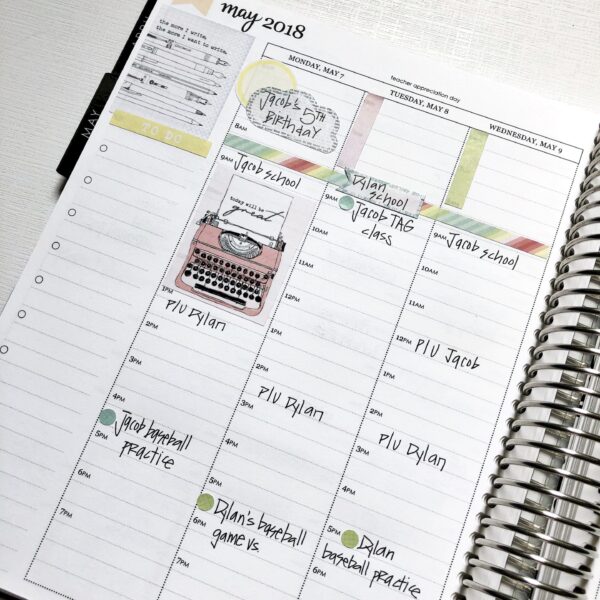 may 2018
the more I write,
the more I want to write.
TO DO
MAY
MONDAY, MAY 7
Jacob's 5TH
Birthday
8AM
9AM Jacob school
today will be
great
1PM
P/U Dylan
2PM
3PM
4PM
5PM Jacob baseball
practice
6PM
7PM
teacher appreciation day
TUESDAY, MAY 8
Dylan
school
9AM Jacob TAG
class
10AM
11AM
12PM
1PM
2PM
P/U Dylan
3PM
4PM
5PM
Dylan's baseball
6PM game vs.
7PM
WEDNESDAY, MAY 9
9AM Jacob school
10AM
11AM
12PM P/U Jacob
1PM
2PM
P/U Dylan
3PM
4PM
5PM Dylan
baseball practice
6PM